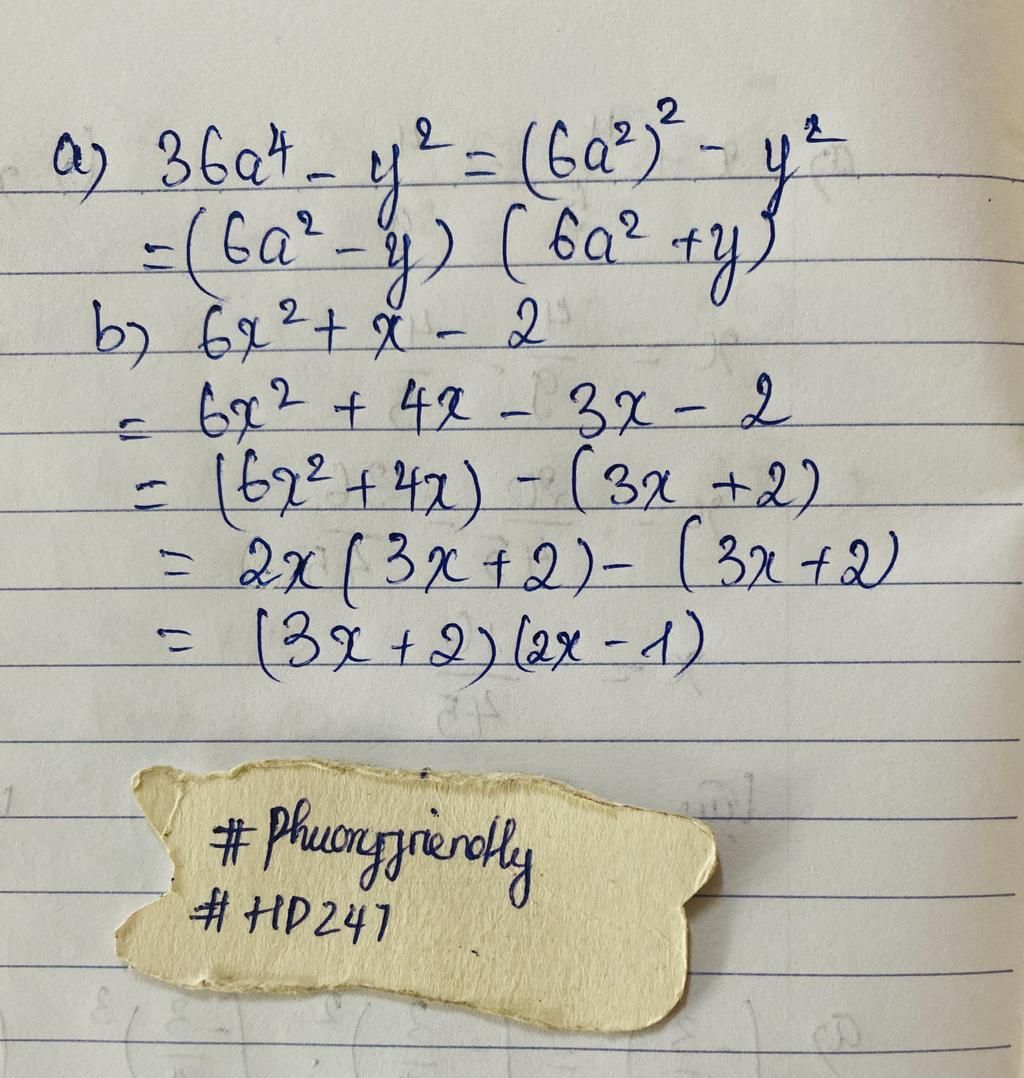 a) 36a⁴ - y² = (6a²)² - y²
= (6a² - y) (6a² + y)
b) 6x² + x - 2
= 6x² + 4x - 3x - 2
= (6x² + 4x) - (3x + 2)
= 2x(3x + 2) - (3x + 2)
= (3x + 2)(2x - 1)
# Phuongfriendly
# HD247